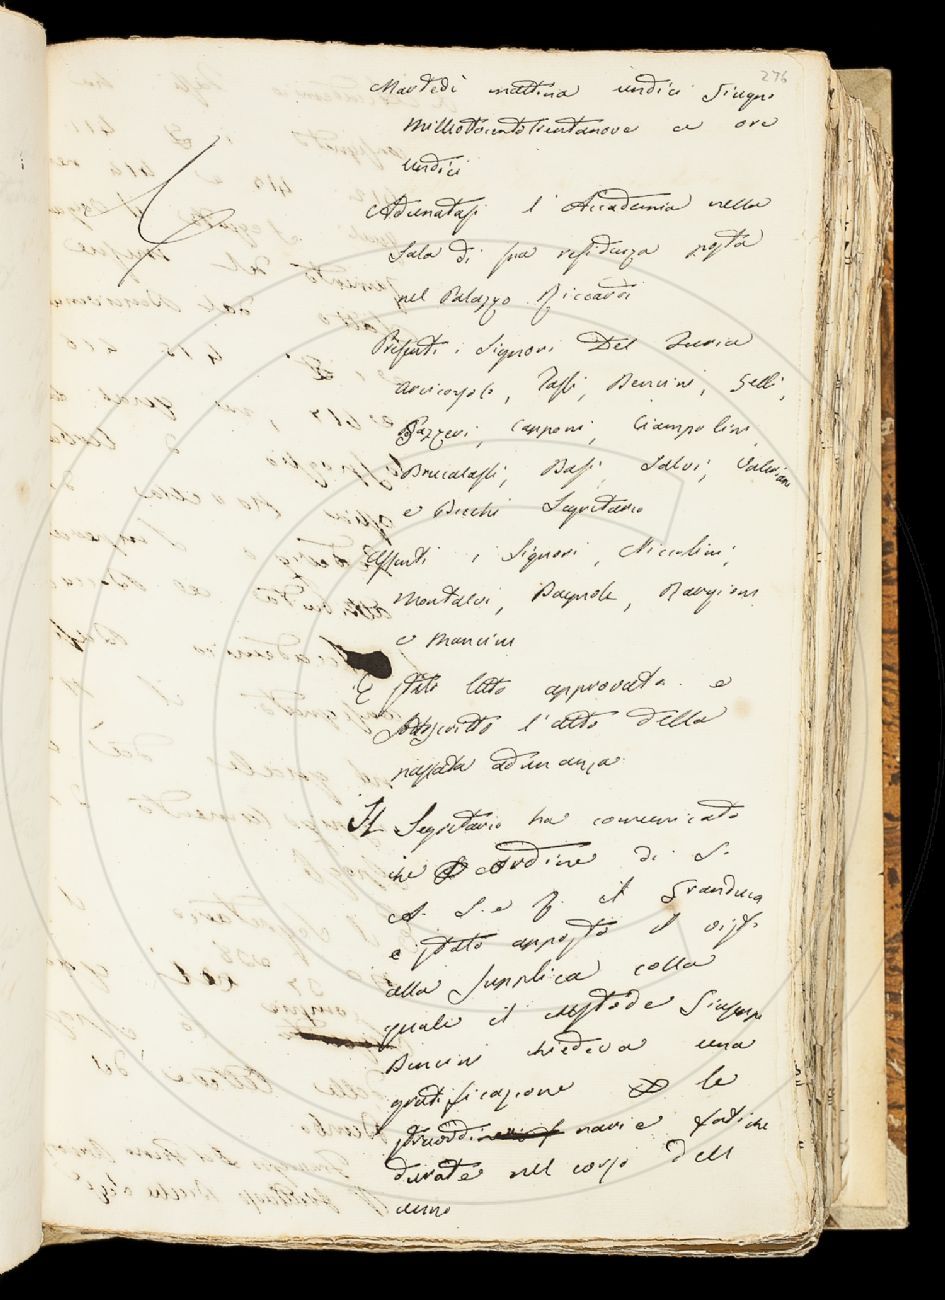 276
Martedì mattina undici Giugno
Milleottocentotrentanove a ore
undici
Adunatasi l'Accademia nella
Sala di sua residenza posta
nel Palazzo Riccardi
Presenti i Signori Del Furia
Arciconsolo, Tassi, Bencini, Gelli,
Bazzeri, Capponi, Ciampolini,
Brucalassi, Basi, Salvi, Valeriani
e Becchi Segretario
Assenti i Signori, Niccolini,
Montalvi, Bagnoli, Targioni
e Mancini
È stato letto approvato e
sottoscritto l'atto della
passata adunanza
Il Segretario ha comunicato
che d'ordine di S.
A. I. e R. il Granduca
è stato apposto il visto
alla supplica colla
quale il custode Giuseppe
Bencini chiedeva una
gratificazione per le
straordinarie fatiche
durate nel corso dell'
anno